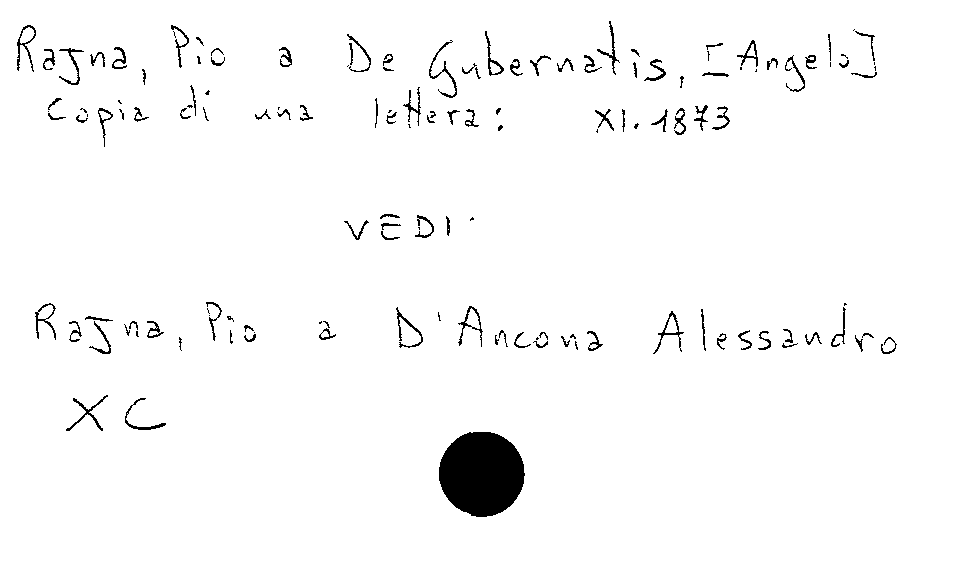 Rajna, Pio a De Gubernatis, [Angelo]
Copia di una lettera: XI. 1873
VEDI.
Rajna, Pio a D'Ancona Alessandro
XC